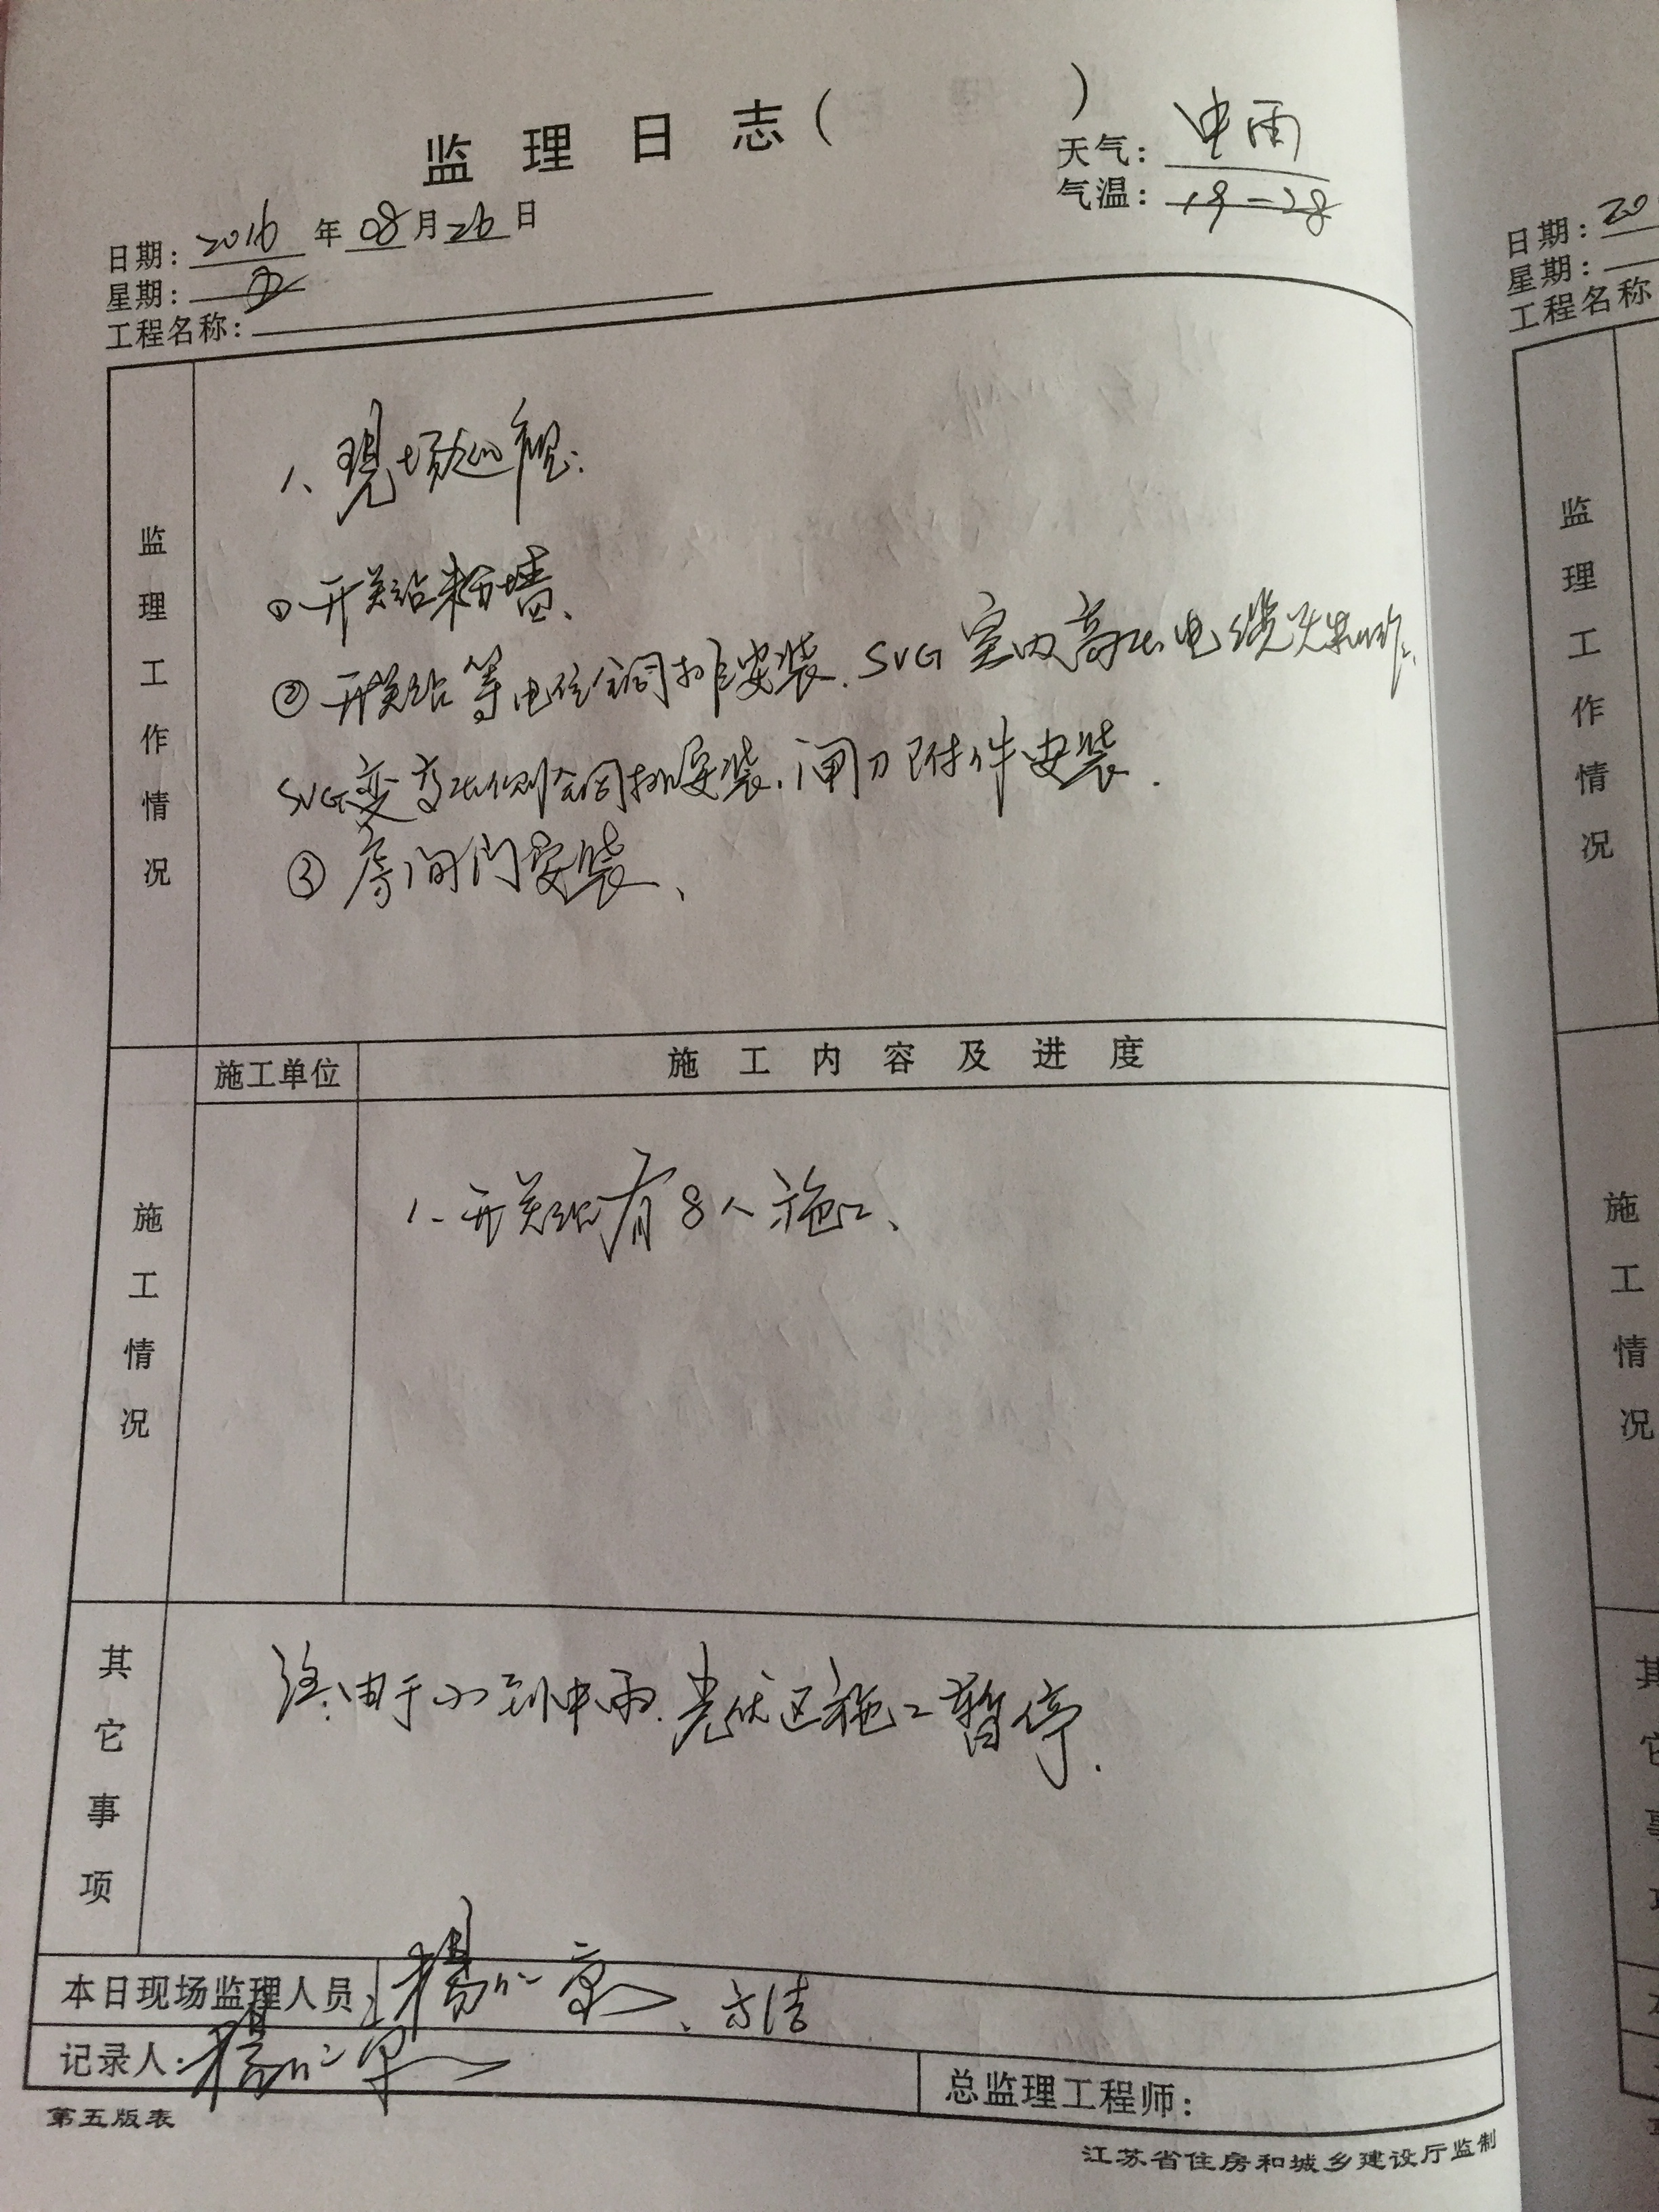 监理日志( )
天气: 中雨
气温: 19-28
日期: 2016 年 08 月 26 日
星期: 五
工程名称:
监理工作情况
1、现场巡视:
①开关站粉墙、
②开关站等电位铜排安装.SVG室内高压电缆头制作、
SVG变高压侧铜排安装、闸刀附件安装.
③房间门安装、
施工单位
施工内容及进度
施工情况
1、开关站有8人施工、
其它事项
注:由于小到中雨.光伏区施工暂停.
本日现场监理人员: 杨 、方洁
记录人: 杨
总监理工程师:
第五版表
江苏省住房和城乡建设厅监制
日期: 20
星期:
工程名称
监理工作情况
施工情况